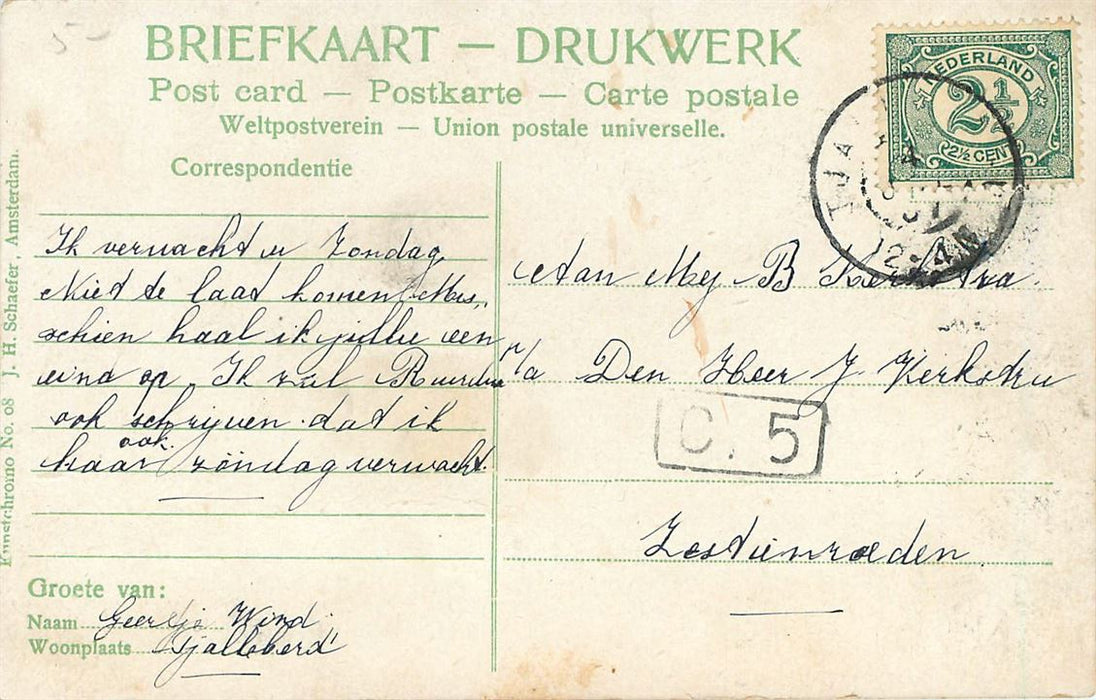 5-
BRIEFKAART — DRUKWERK
Post card — Postkarte — Carte postale
Weltpostverein — Union postale universelle.
Correspondentie
NEDERLAND
2½
2½ CENT
12-4N
Ik verwacht u Zondag
Niet te laat komen. Mis„
schien haal ik jullie een
eind op. Ik zal Ruurdu
ook schrijven dat ik
haar ook zondag verwacht.
Groete van:
Naam Geertje Wind
Woonplaats Tjalleberd
Aan Mej B Kerkstra.
p/a Den Heer J. Kerkstra
C. 5
Zestienroeden
Kunstchromo No. 08 J. H. Schaefer, Amsterdam.